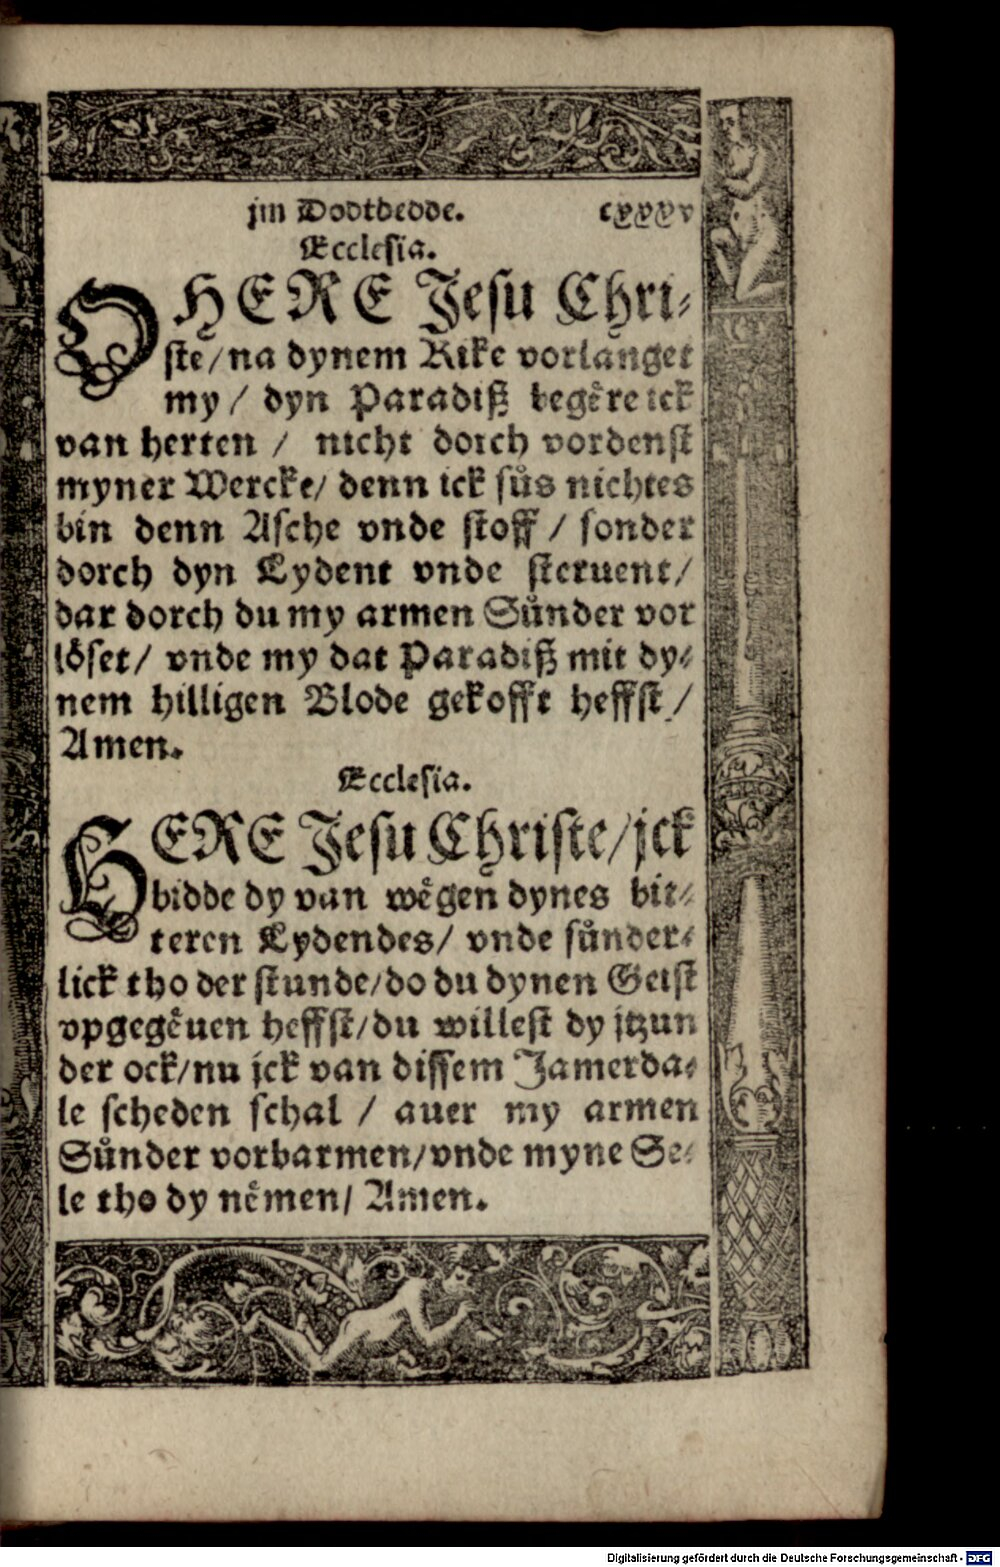 jm Dodtbedde. cxxxv
Ecclesia.
O HERE Jesu Chri⸗
ste/ na dynem Rike vorlanget
my / dyn Paradiß begeͤre ick
van herten / nicht dorch vordenst
myner Wercke/ denn ick suͤs nichtes
bin denn Asche vnde stoff / sonder
dorch dyn Lydent vnde steruent/
dar dorch du my armen Suͤnder vor
loͤset/ vnde my dat Paradiß mit dy⸗
nem hilligen Blode gekofft heffst /
Amen.
Ecclesia.
HERE Jesu Christe/ jck
bidde dy van weͤgen dynes bit⸗
teren Lydendes/ vnde suͤnder⸗
lick tho der stunde/ do du dynen Geist
vpgegeͤuen heffst/ du willest dy jtzun
der ock/ nu jck van dissem Jamerda⸗
le scheden schal / auer my armen
Suͤnder vorbarmen/ vnde myne Se⸗
le tho dy neͤmen/ Amen.
Digitalisierung gefördert durch die Deutsche Forschungsgemeinschaft - DFG